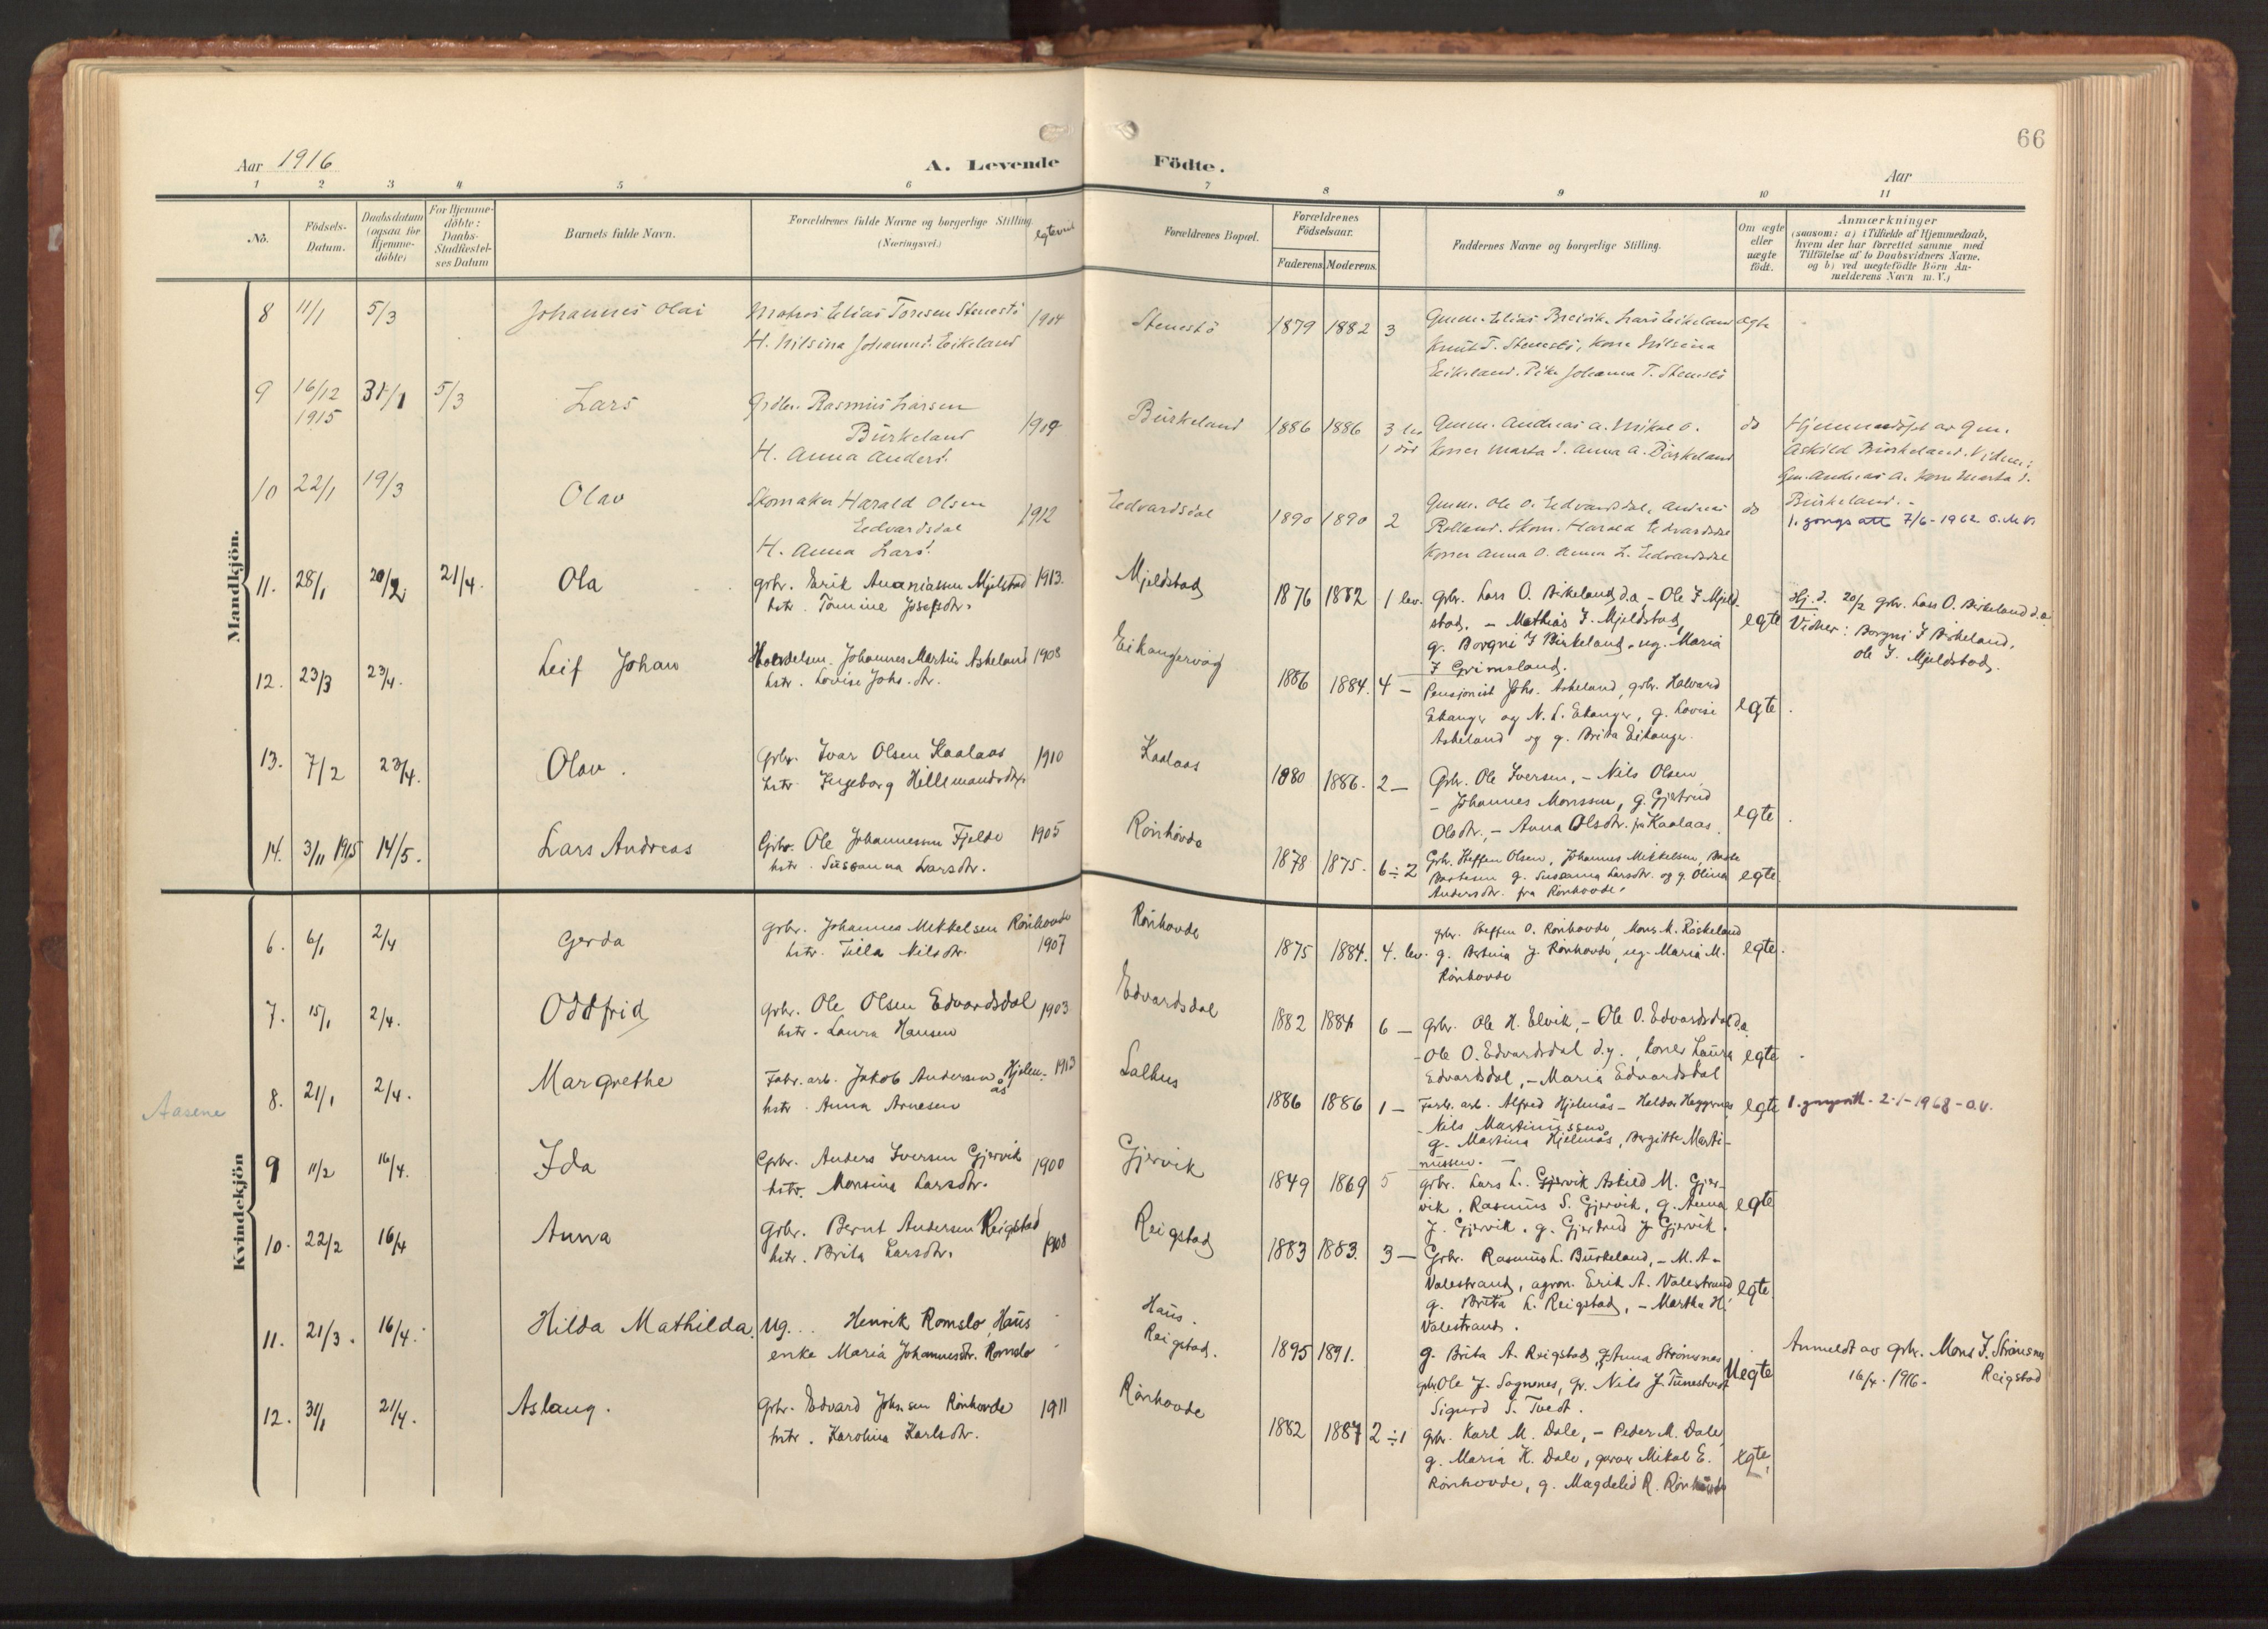 66
Aar 1916
A. Levende Födte.
Aar
1 2 3 4 5 6 7 8 9 10 11
No.
Födsels-Datum.
Daabsdatum (ogsaa for Hjemme-döbte)
For Hjemme-döbte: Daabs-Stadfestel-ses Datum
Barnets fulde Navn.
Forældrenes fulde Navne og borgerlige Stilling. (Næringsvei.)
Forældrenes Bopæl.
Forældrenes Födselsaar.
Faderens. Moderens.
Faddernes Navne og borgerlige Stilling.
Om ægte eller uægte födt.
Anmærkninger
(saasom: a) i Tilfælde af Hjemmedaab,
hvem der har forrettet samme med
Tilföielse af to Daabsvidners Navne.
og b) ved uægtefödte Börn An-
melderens Navn m. V.)
Mandkjön.
8 11/1 5/3 Johannes Olai
Matros Elias Toresen Stenestö 1904
H. Nilsina Johannesd. Eikeland
Stenestö 1879 1882 3
Gmm. Elias Breivik. Lars Eikeland ægte
Knut T. Stenestö, Kone Nilsina
Eikeland. Pike Johanna T. Stenestö
9 16/12 1915 31/1 5/3 Lars
Rasmus Larsen
Birkeland 1909
H. Anna Andersd.
Birkeland 1886 1886 3 lev 1 död
Gmm. Andreas A. Mikal O. do
Koner Marta I. Anna A. Birkeland
Hjemmedöpt av Gm.
Askild Birkeland. Vidner:
Gm. Andreas A. Kone Marta I.
Birkeland.
10 22/1 19/3 Olav
Skomaker Harald Olsen
Eedvardsdal 1912
H. Anna Larsd.
Eedvardsdal 1890 1890 2
Gmm. Ole O. Eedvardsdal, Andreas do
Rolland. Skom. Harald Edvardsdal
Koner Anna O. Anna L. Eedvardsdal
1. gongs att. 7/6-1962
11. 28/1 20/2 21/4. Ola
Grbr. Erik Ananiassen Mjelstad 1913.
hstr. Tomine Josefsdtr.
Mjeldstad 1876 1882 1 lev.
Grbr. Lars O. Birkeland d.a, - Ole I Mjeld-
stad, - Mathias I. Mjeldstad, egte
g. Borgni I Birkeland, ug. Maria
I Grimsland.
Hj. d. 20/2 grbr. Lars O. Birkeland d.a.
Vidner: Borgni I Birkeland,
Ole I. Mjeldstad.
12. 23/3 23/4. Leif Johan
Handelsm. Johannes Martin Askeland 1908
hstr. Lovise Johs.dtr.
Eikangervåg 1886 1884. 4 -
Pensjonist Johs. Askeland, grbr. Halvard
Eikanger og N. L. Eikanger, g. Lovise egte.
Askeland og g. Brita Eikanger.
13. 7/2 23/4. Olav.
Grbr. Ivar Olsen Kaalaas 1910
hstr. Ingeborg Hillemandsdtr.
Kaalaas 1880 1886. 2 -
Grbr. Ole Iversen, - Nils Olsen
- Johannes Monssen, g. Gjertrud egte.
Olsdtr., - Anna Olsdtr. fra Kaalaas.
14. 3/11 1915 14/5. Lars Andreas
Grbr. Ole Johannessen Fjelde 1905
hstr. Susanna Larsdtr.
Rönhövde 1878 1875. 6÷2
Grbr. Steffen Olsen, Johannes Mikkelsen,
g. Susanna Larsdtr. og g. Olina egte.
Andersdtr. fra Rönhovde.
Kvindekjön
6. 6/1 2/4 Gerda
Grbr. Johannes Mikkelsen Rönhovde
hstr. Tilla Nilsdtr. 1907
Rönhovde 1875 1884. 4. lev.
grbr. Steffen O. Rönhovde, Mons M. Röskeland
g. Bertina J. Rönhovde, ug. Maria M. egte.
Rönhovde
7. 15/1 2/4. Oddfrid
Grbr. Ole Olsen Edvardsdal 1903
hstr. Laura Hansen
Edvardsdal 1882 1884 6 -
Grbr. Ole H. Elvik, - Ole O. Edvardsdal d.a
- Ole O. Edvardsdal d.y., koner Laura egte.
Edvardsdal, - Maria Edvardsdal
Aasene
8. 21/1 2/4. Margrethe
Fabr. arb. Jakob Andersen Hjelm-ås 1913
hstr. Anna Arnesen
Salhus 1886 1886 1 -
Fabr. arb. Alfred Hjelmås - Haldor Heggernes egte
- Nils Martinussen
g. Martina Hjelmås, Bergitte Marti-
nussen. -
1. gongsatt. 2-1-1968 - O.V.
9 11/2 16/4. Ida
Grbr. Anders Iversen Gjervik 1900
hstr. Monsina Larsdtr.
Gjervik 1849 1869 5
grbr. Lars L. Gjervik Askild M. Gjer-
vik, Rasmus S. Gjervik, g. Anna egte
J. Gjervik, g. Gjertrud J. Gjervik.
10. 22/2 16/4 Anna
Grbr. Bernt Andersen Reigstad 1908
hstr. Brita Larsdtr.
Reigstad 1883 1883. 3 -
Grbr. Rasmus L. Birkeland, - M. A.
Valestrand, agron. Erik A. Valestrand egte.
g. Brita L. Reigstad, - Martha H.
Valestrand.
11. 21/3. 16/4. Hilda Mathilda.
Ug. Henrik Romslo, Haus
enke Maria Johannesdtr. Romslo
Haus.
Reigstad. 1895 1891.
g. Brita A. Reigstad, g. Anna Strömsnes Uegte
grbr. Ole J. Sognnes, gr. Nils J. Tunestvedt
Sigurd S. Tvedt.
Anmeldt av grbr. Mons I. Strömsnes
16/4. 1916. Reigstad
12. 31/1 21/4. Aslaug.
Grbr. Edvard Johnsen Rönhovde 1911
hstr. Karolina Karlsdtr.
Rönhovde 1882 1887 2÷1
Grbr. Karl M. Dale, - Peder M. Dale,
g. Maria K. Dale, Mikal E. egte.
Rönhovde, g. Magdeli R. Rönhovde